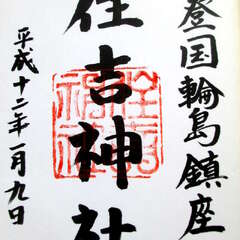 登国輪島鎮座
住吉神社
平成十二年一月九日